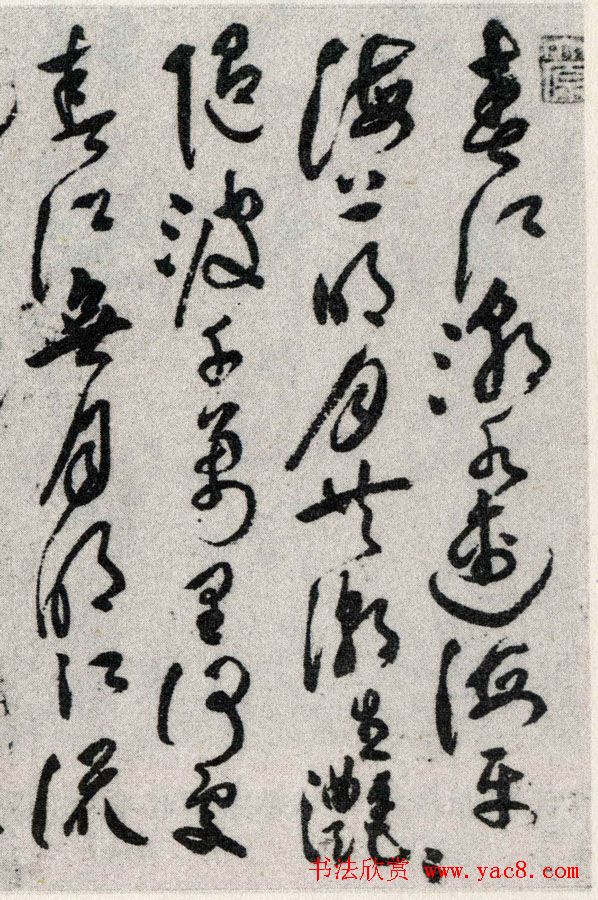 春江潮水連海平
海上明月共潮生灩〻
隨波千萬里何處
春江無月明江流
书法欣赏 www.yac8.com